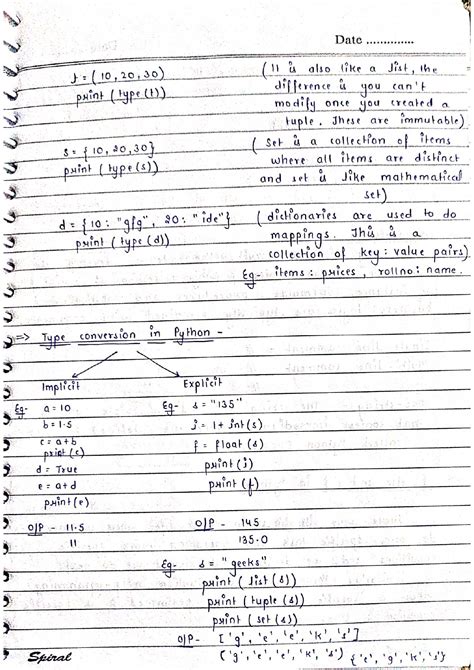 Date ..............
t = (10, 20, 30) (It is also like a list, the
print (type(t)) difference is you can't
modify once you created a
tuple. These are immutable)
s = {10, 20, 30} (Set is a collection of items
print (type(s)) where all items are distinct
and set is like mathematical
set)
d = {10: "gfg", 20: "ide"} (dictionaries are used to do
print (type(d)) mappings. This is a
collection of key: value pairs)
Eg- items: prices, rollno: name.
=> Type conversion in Python -
Implicit Explicit
Eg- a = 10 Eg- s = "135"
b = 1.5 i = 1 + int(s)
c = a+b f = float(s)
print(c) print(i)
d = True print(f)
e = a+d
print(e)
O/P - 11.5 O/P - 145
11 135.0
Eg- s = "geeks"
print (list(s))
print (tuple(s))
print (set(s))
O/P- ['g', 'e', 'e', 'k', 's']
('g', 'e', 'e', 'k', 's') {'e', 'g', 'k', 's'}
Spiral